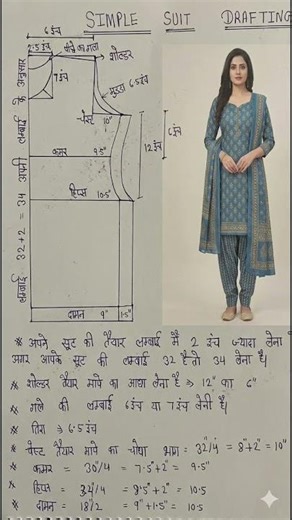 SIMPLE SUIT DRAFTING
6 इंच
2.5 इंच
पीछे का गला
शोल्डर
7 इंच
मुड्डा 6.5 इंच
चेस्ट 10"
6 इंच
12 इंच
कमर 9.5"
हिप्स 10.5"
दामन 9" 1.5"
लम्बाई 32+2 = 34 अपनी लम्बाई के अनुसार
* अपने सूट की तैयार लम्बाई में 2 इंच ज्यादा लेना
अगर आपके सूट की लम्बाई 32 है तो 34 लेना है।
* शोल्डर तैयार मापे का आधा लेना है ⇒ 12" का 6"
* गले की लम्बाई 6 इंच या 7 इंच लेनी है।
* तिरा ⇒ 6.5 इंच
* चेस्ट तैयार मापे का चौथा भाग = 32"/4 = 8"+2" = 10"
* कमर = 30"/4 = 7.5"+2" = 9.5"
* हिप्स = /4 = 8.5"+2" = 10.5
* दामन = 18/2 = 9"+1.5" = 10.5